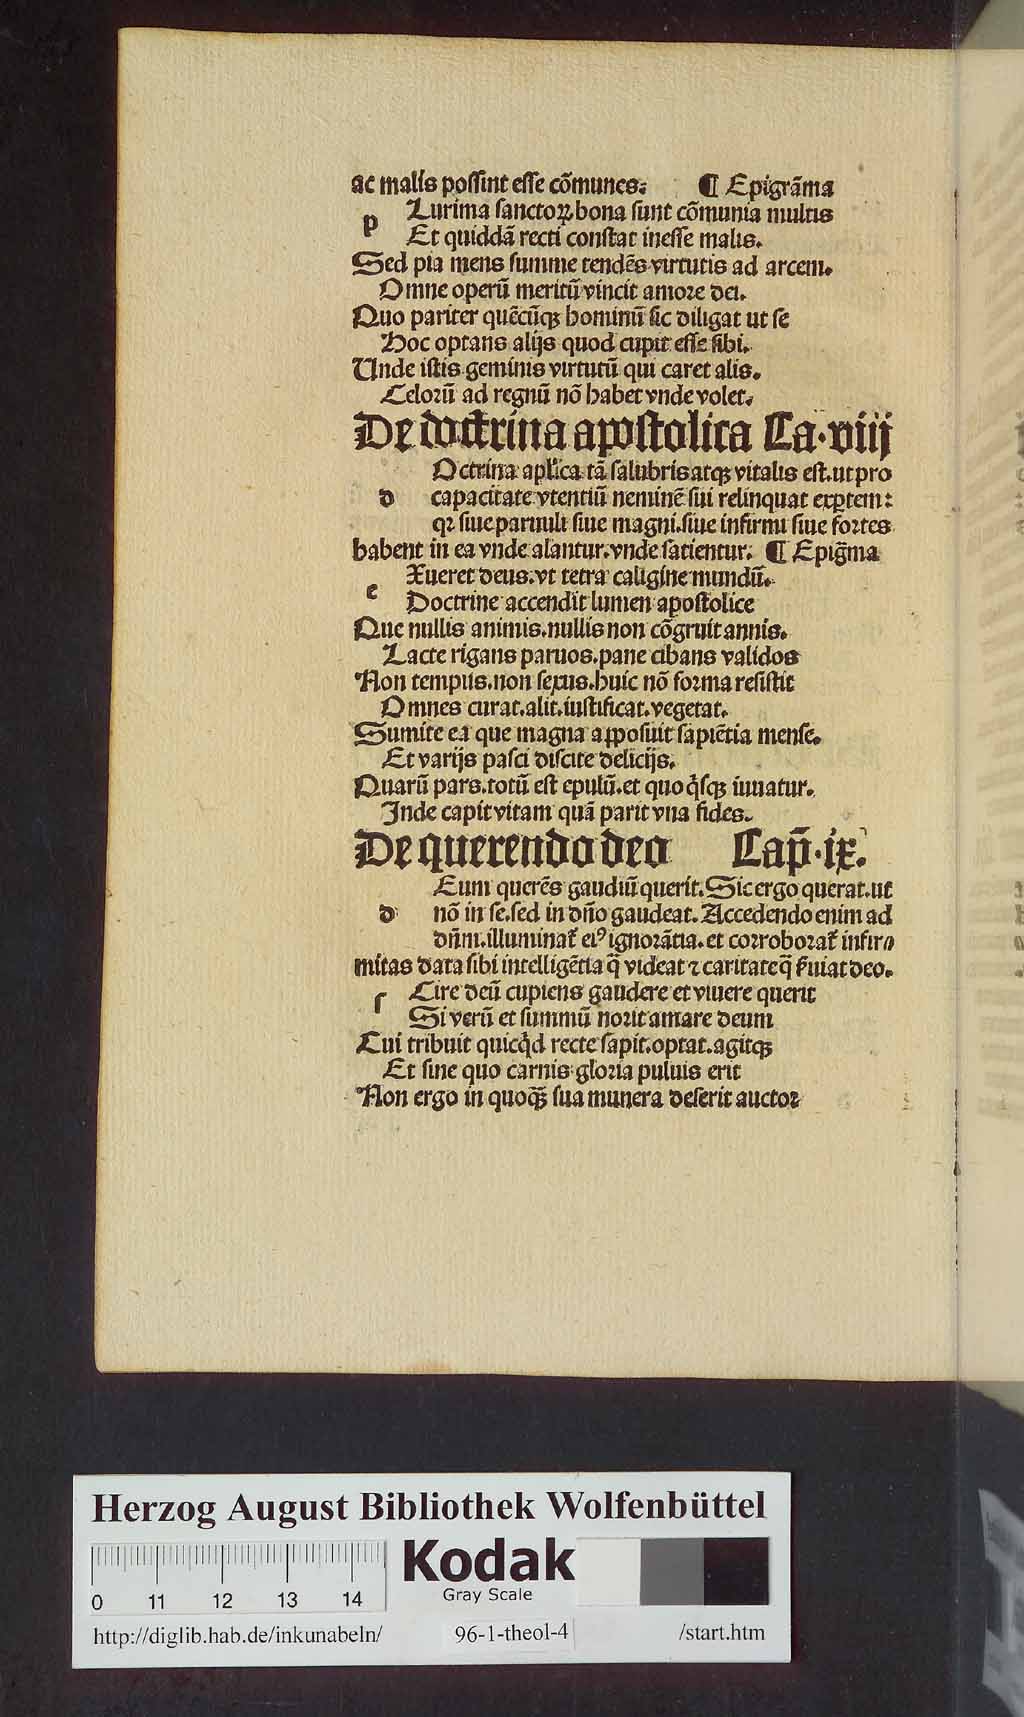 ac malis possint esse cõmunes: ¶ Epigrãma
p Lurima sanctoꝝ bona sunt cõmunia multis
Et quiddã recti constat inesse malis.
Sed pia mens summe tendẽs virtutis ad arcem.
Omne operũ meritũ vincit amore dei.
Quo pariter quẽcũqꝫ hominũ sic diligat ut se
Hoc optans alijs quod cupit esse sibi.
Unde istis geminis virtutũ qui caret alis.
Celorũ ad regnũ nõ habet vnde volet.
De doctrina apostolica Ca. viij
Octrina aplica tã salubris atqꝫ vitalis est. ut pro
d capacitate vtentiũ neminẽ sui relinquat exptem:
qꝛ siue paruuli siue magni. siue infirmi siue fortes
habent in ea vnde alantur. vnde satientur: ¶ Epig̃ma
Xueret deus. vt tetra caligine mundũ.
e Doctrine accendit lumen apostolice
Que nullis animis. nullis non cõgruit annis.
Lacte rigans paruos. pane cibans validos
Non tempus. non sexus. huic nõ forma resistit
Omnes curat. alit. iustificat. vegetat.
Sumite ea que magna apposuit sapiẽtia mense.
Et varijs pasci discite delicijs.
Quarũ pars. totũ est epulũ. et quo q̇sqꝫ iuuatur.
Inde capit vitam quã parit vna fides.
De querendo deo Cap̃. ix.
Eum querẽs gaudiũ querit. Sic ergo querat. ut
d nõ in se. sed in dño gaudeat. Accedendo enim ad
dñm. illuminat᷑ eiꝰ ignorãtia. et corroborat᷑ infir⸗
mitas data sibi intelligẽtia q̃ videat ⁊ caritate q̃ ẜuiat deo.
Cire deũ cupiens gaudere et viuere querit
s Si verũ et summũ norit amare deum
Cui tribuit quicq̇d recte sapit. optat. agitqꝫ
Et sine quo carnis gloria puluis erit
Non ergo in quoqꝫ̃ sua munera deserit auctor
Herzog August Bibliothek Wolfenbüttel
Kodak
Gray Scale
0 11 12 13 14
http://diglib.hab.de/inkunabeln/ 96-1-theol-4 /start.htm